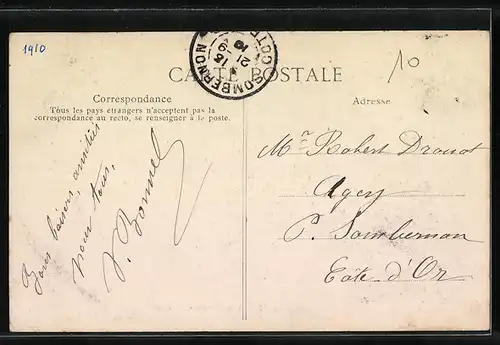 1910
10
SOMBERNON
CÔTE
15
21
9
10
CARTE POSTALE
Correspondance
Tous les pays étrangers n'acceptent pas la
correspondance au recto, se renseigner à la poste.
Adresse
Bons baisers, amitiés
pour tous,
J. Bonnel
Mr Robert Drouot
Agey
P. Sombernon
Côte d'Or